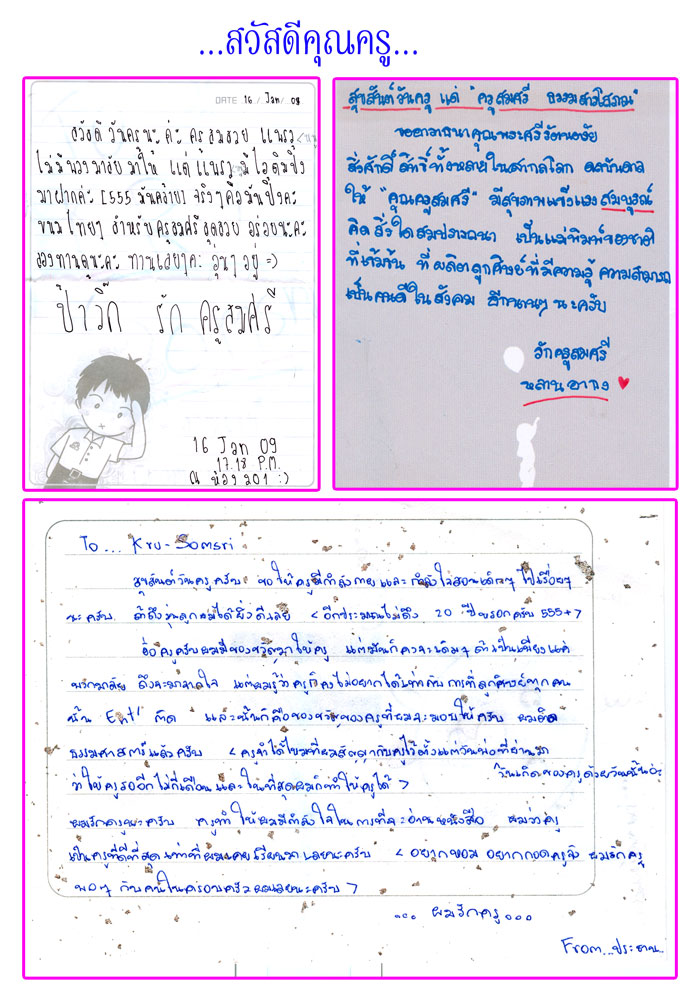 ...สวัสดีคุณครู...
DATE 16 / Jan / 09
สวัสดี วันครูนะ ค่ะ ครู สมสวย แพรว
ไม่มี พวงมาลัย มาให้ แต่ แพรว มี ไอติมปิ้ง
มาฝากค่ะ [555 มันคล้าย] จริงๆ คือ มันปิ้งค่ะ
ขนม ไทยๆ สำหรับ ครูสมศรี สุดสวย อร่อยนะคะ
ลองทานดูนะคะ ทานเลยๆค่ะ อุ่นๆ อยู่ =)
ป้าวิ๊ก รัก ครูสมศรี
16 Jan 09
17.18 P.M.
ณ ห้อง 201 :)
สุขสันต์วันครู แด่ "ครูสมศรี ธรรมสารโสภณ"
ขออาราธนาคุณพระศรีรัตนตรัย
สิ่งศักดิ์สิทธิ์ทั้งหลายในสากลโลก ดลบันดาล
ให้ "คุณครูสมศรี" มีสุขภาพแข็งแรง สมบูรณ์
คิดสิ่งใดสมปรารถนา เป็นแม่พิมพ์ของชาติ
ที่เข้มข้น ที่ผลิตลูกศิษย์ที่มีความรู้ ความสามารถ
เป็นคนดีในสังคม อีกนานๆ นะครับ
รักครูสมศรี
หลานอากง
To... Kru-Somsri
สุขสันต์วันครูครับ ขอให้ครูมีกำลังกายและกำลังใจสอนเด็กๆ ไปเรื่อยๆ
นะครับ ถ้าถึงรุ่นลูกผมได้ยิ่งดีเลย < อีกประมาณไม่ถึง 20 ปีหรอกครับ 555+ >
อ้อ ครูครับผมมีของขวัญมาให้ครู แต่มันก็คงจะเดิมๆ ถ้าเป็นเพียงแค่
พวงมาลัย ถึงจะมาจากใจ แต่ผมรู้ว่าครูก็คงไม่อยากได้เท่ากับการที่ลูกศิษย์ทุกคน
นั้น Ent' ติด และนั้นก็คือของขวัญของครูที่ผมจะมอบให้ครับ ผมติด
ธรรมศาสตร์แล้วครับ < ครูจำได้ไหมที่ผมสัญญากับครูไว้ตั้งแต่วันพ่อที่ผ่านมา
วันเกิดของครูด้วยวันนั้นอ่ะ
ว่าให้ครูรออีกไม่กี่เดือน และในที่สุดผมก็ทำให้ครูได้ >
ผมรักครูนะครับ ครูทำให้ผมมีกำลังใจในการที่จะอ่านหนังสือ ผมว่าครู
เป็นครูที่ดีที่สุดเท่าที่ผมเคยเรียนมาเลยนะครับ < อยากหอม อยากกอดครูจัง ผมรักครู
พอๆ กับคนในครอบครัวผมเลยนะครับ >
... ผมรักครู...
From...ประธาน..